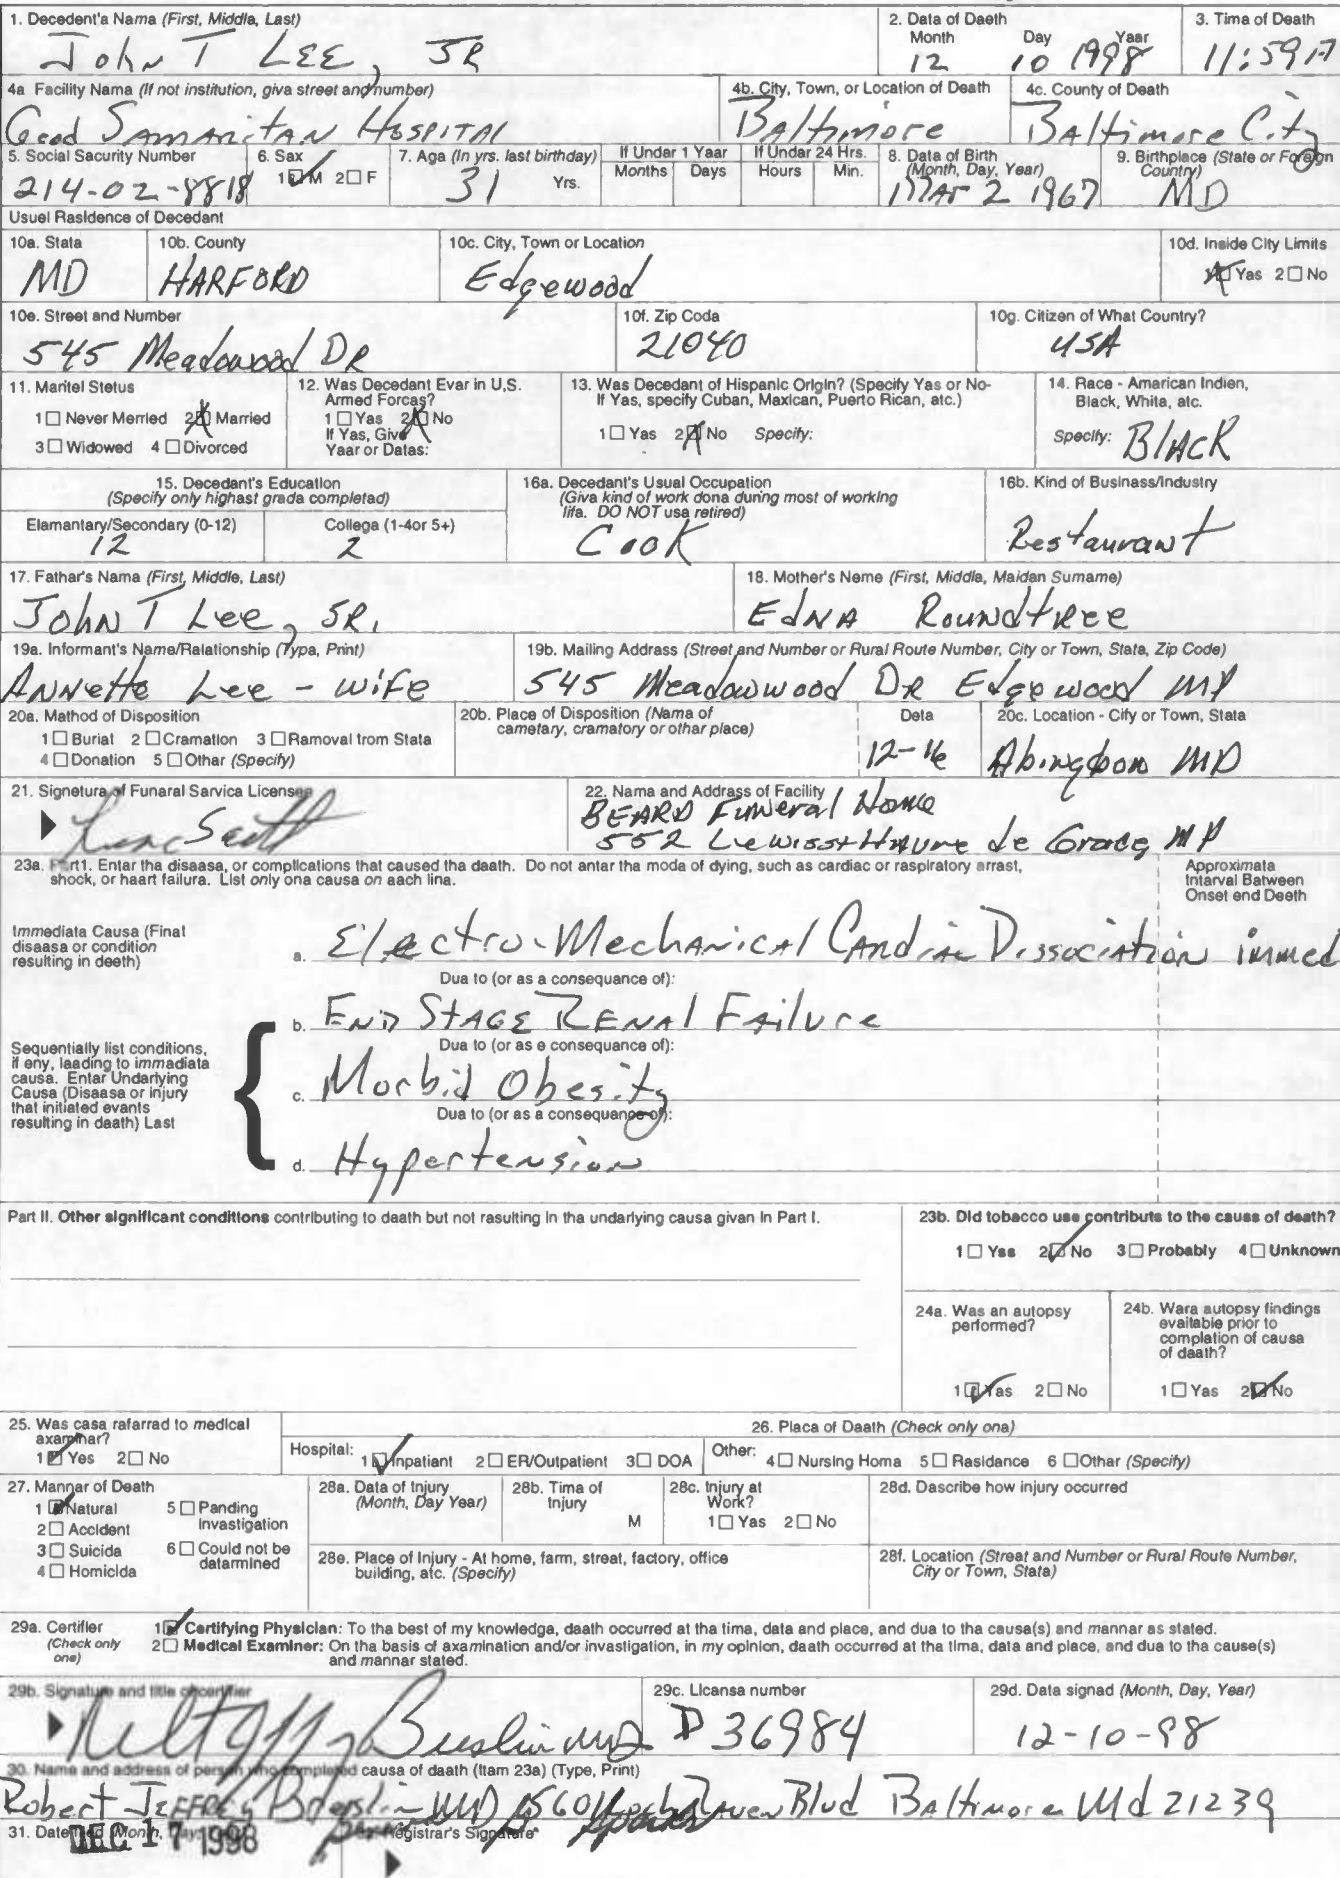 1. Decedent's Name (First, Middle, Last)
John T LEE, JR
2. Data of Daeth
Month Day Yaar
12 10 1998
3. Tima of Death
11:59 A
4a Facility Name (If not institution, giva street and number)
Good SAMARITAN HOSPITAL
4b. City, Town, or Location of Death
BAltimore
4c. County of Death
BAltimore City
5. Social Sacurity Number
214-02-8818
6. Sax
1☑M 2☐F
7. Aga (In yrs. last birthday)
31 Yrs.
If Under 1 Yaar
Months Days
If Under 24 Hrs.
Hours Min.
8. Data of Birth (Month, Day, Year)
MAr 2 1967
9. Birthplace (State or Foreign Country)
MD
Usuel Rasldence of Decedant
10a. Stata
MD
10b. County
HARFORD
10c. City, Town or Location
Edgewood
10d. Inside City Limits
1☒Yas 2☐No
10e. Street and Number
545 Meadowood DR
10f. Zip Coda
21040
10g. Citizen of What Country?
USA
11. Maritel Stetus
1☐Never Merried 2☒Married
3☐Widowed 4☐Divorced
12. Was Decedant Evar in U,S.
Armed Forcas?
1☐Yas 2☒No
If Yas, Give
Yaar or Datas:
13. Was Decedant of Hispanic Origin? (Specify Yas or No-
If Yas, specify Cuban, Maxlcan, Puerto Rican, atc.)
1☐Yas 2☒No Specify:
14. Race - Amarican Indien,
Black, Whita, atc.
Specify: BlACK
15. Decedant's Education
(Specify only highast grada completad)
Elamantary/Secondary (0-12)
12
Collega (1-4or 5+)
2
16a. Decedant's Usual Occupation
(Giva kind of work dona during most of working
lifa. DO NOT usa retired)
Cook
16b. Kind of Businass/Industry
Restaurant
17. Fathar's Name (First, Middle, Last)
John T Lee, SR.
18. Mother's Neme (First, Middle, Maidan Surname)
EdNA Roundtree
19a. Informant's Name/Ralationship (Typa, Print)
ANNette Lee - wife
19b. Mailing Address (Street and Number or Rural Route Number, City or Town, Stata, Zip Code)
545 Meadowwood DR Edgewood MD
20a. Mathod of Disposition
1☐Burial 2☐Cramation 3☐Ramoval from Stata
4☐Donation 5☐Othar (Specify)
20b. Place of Disposition (Nama of
camatary, cramatory or othar place)
Deta
12-16
20c. Location - City or Town, Stata
Abingdon MD
21. Signetura of Funaral Sarvica Licensee
22. Name and Address of Facility
BEARD Funeral Home
552 Lewis St Havre de Grace, MD
23a. Part1. Enter tha disaasa, or complications that caused tha daath. Do not antar tha moda of dying, such as cardiac or raspiratory arrast,
shock, or haart failura. List only ona causa on aach lina.
Approximata
Intarval Batween
Onset end Deeth
Immediata Causa (Final
disaasa or condition
resulting in deeth)
a. Electro-Mechanical Cardiac Dissociation immed
Due to (or as a consequance of):
b. END STAGE RENAl FAilure
Dua to (or as e consequance of):
c. Morbid Obesity
Dua to (or as a consequance of):
d. Hypertension
Sequentially list conditions,
if eny, laading to immadiata
causa. Entar Undarlying
Causa (Disaasa or injury
that initiated evants
resulting in daath) Last
Part II. Other significant conditions contributing to daath but not rasulting in tha undarlying causa givan in Part I.
23b. Did tobacco use contributs to the cause of death?
1☐Yss 2☑No 3☐Probably 4☐Unknown
24a. Was an autopsy
performed?
1☑Yas 2☐No
24b. Wara autopsy findings
evailable prior to
complation of causa
of daath?
1☐Yas 2☑No
25. Was casa rafarrad to medical
axaminar?
1☑Yes 2☐No
26. Placa of Daath (Check only ona)
Hospital: 1☑Inpatiant 2☐ER/Outpatient 3☐DOA Other: 4☐Nursing Homa 5☐Rasidance 6☐Othar (Specify)
27. Mannar of Death
1☑Natural 5☐Panding
Invastigation
2☐Accident
3☐Suicida 6☐Could not be
datarmined
4☐Homicida
28a. Data of Injury
(Month, Day Year)
28b. Tima of
Injury
M
28c. Injury at
Work?
1☐Yas 2☐No
28d. Dascribe how injury occurred
28e. Place of Injury - At home, farm, streat, factory, office
building, atc. (Specify)
28f. Location (Streat and Number or Rural Route Number,
City or Town, Stata)
29a. Certifier
(Check only
one)
1☑Cartifying Physlcian: To tha best of my knowledga, daath occurred at tha tima, data and place, and due to tha causa(s) and mannar as stated.
2☐Madtcal Examiner: On tha basis of axamination and/or invastigation, in my opinion, daath occurred at tha tima, data and placa, and dua to tha cause(s)
and mannar stated.
29b. Signature and title of certifier
29c. Licansa number
D 36984
29d. Data signad (Month, Day, Year)
12-10-98
30. Name and address of person who completed causa of daath (Itam 23a) (Type, Print)
Robert Jeffrey MD Raven Blvd BAltimore Md 21239
31. Date filed (Month, Day, Year)
DEC 17 1998
Registrar's Signature